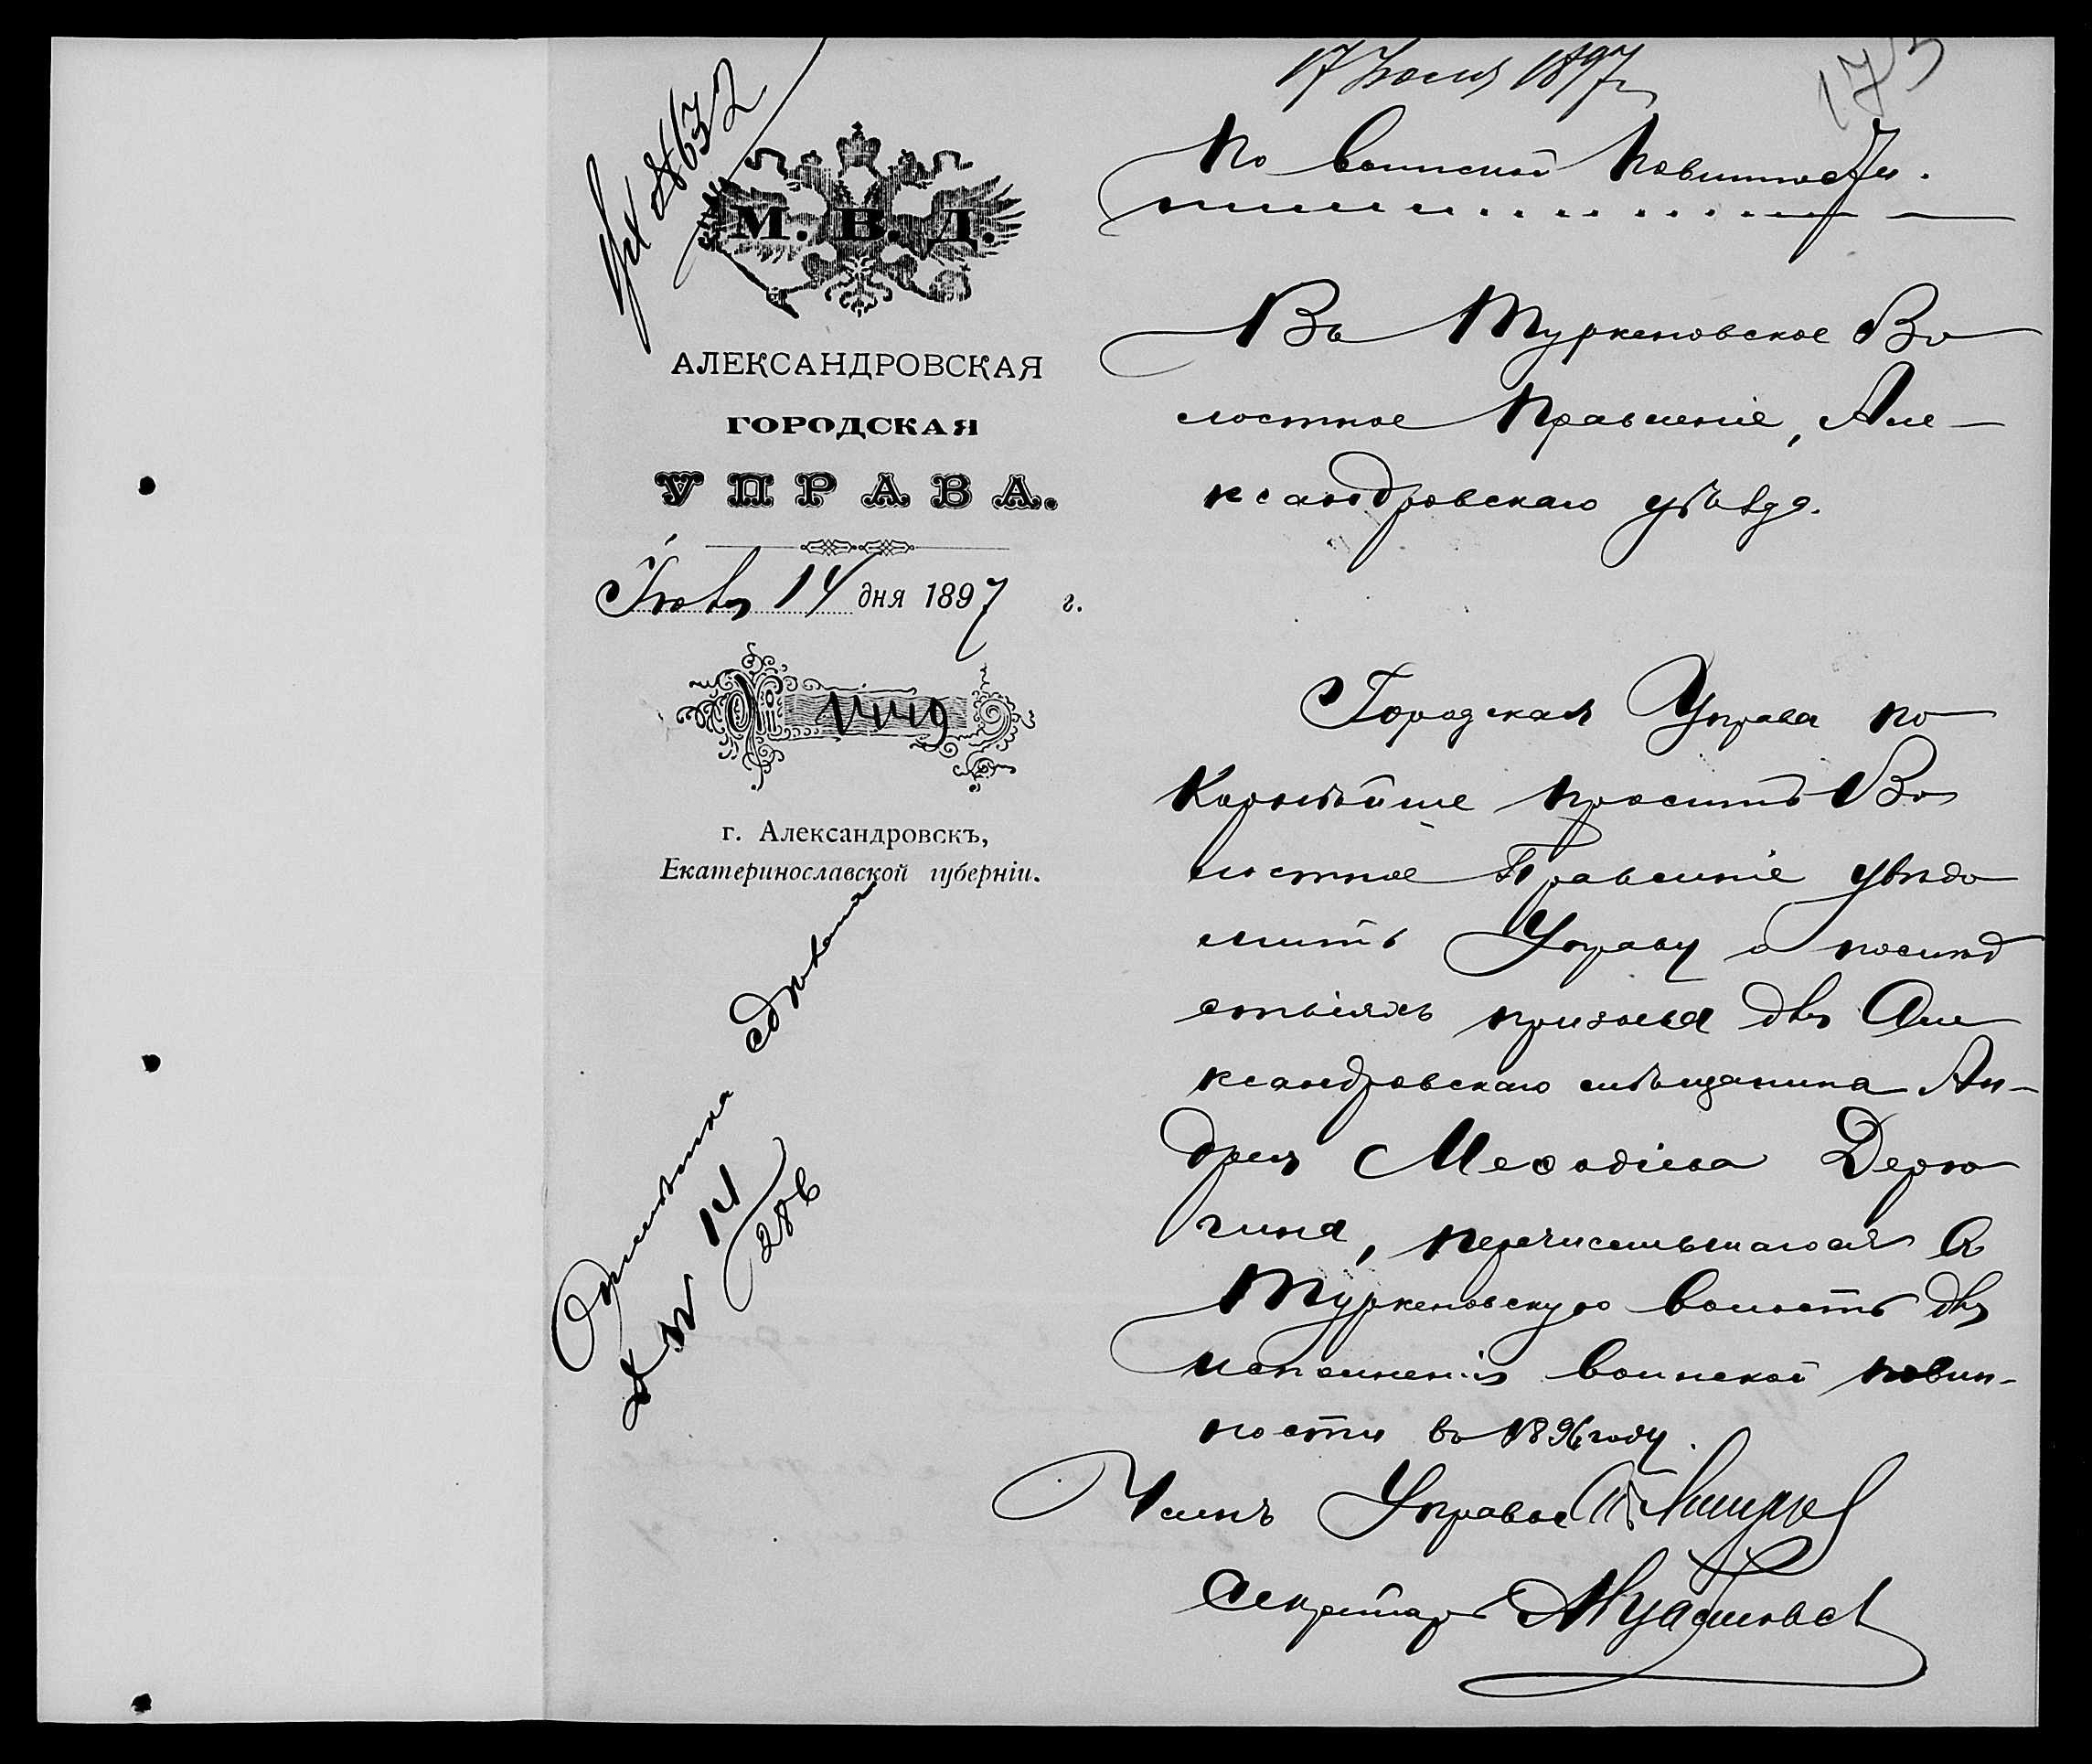 17 Іюля 1897 г.
175
Вх № 632
М. В. Д.
АЛЕКСАНДРОВСКАЯ
ГОРОДСКАЯ
УПРАВА.
Іюля 14 дня 1897 г.
№ 1449
г. Александровскъ,
Екатеринославской губерніи.
По воинской повинности.
Въ Туркеновское Во
лостное Правленіе, Але-
ксандровскаго уѣзда.
Городская Управа по
корнѣйше проситъ Во
лостное Правленіе увѣдо
мить Управу о послѣд
ствіяхъ призыва для Але
ксандровскаго мѣщанина Ан-
дрея Меѳодіева Дерю
гина, перечислившагося въ
Туркеновскую волость для
исполненія воинской повин-
ности въ 1896 году.
Членъ Управы
Секретарь
Отмѣтка сдѣлана
14
286